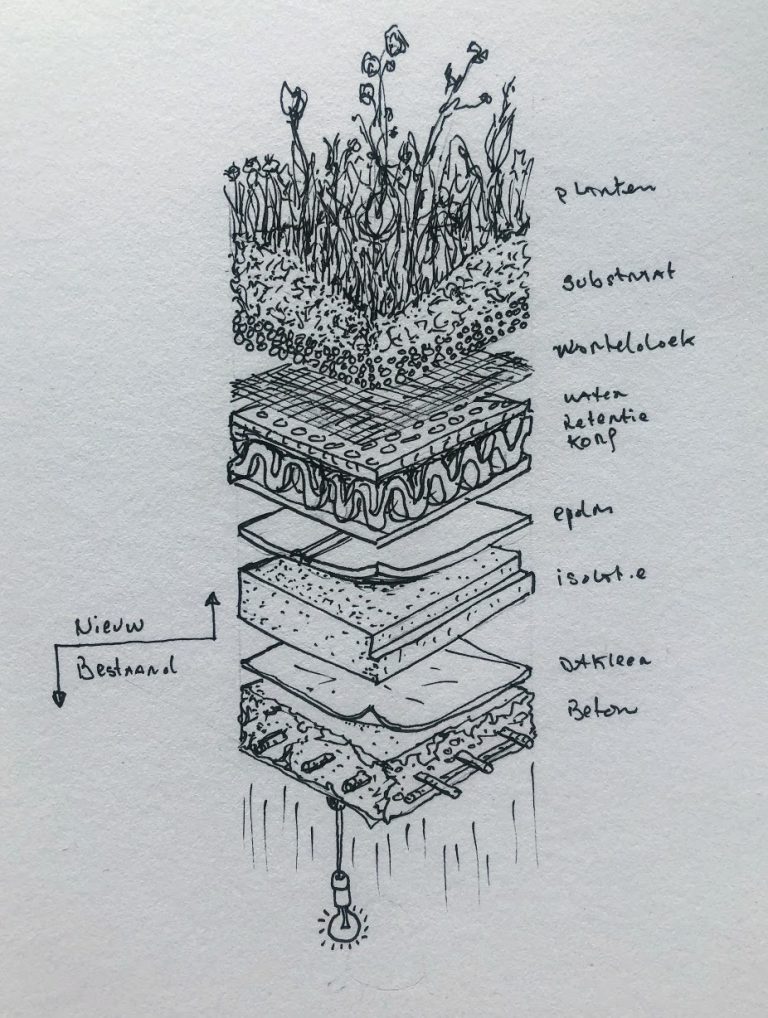 planten
substraat
worteldoek
water
retentie
korf
epdm
isolatie
Nieuw
Bestaand
Dakleer
Beton